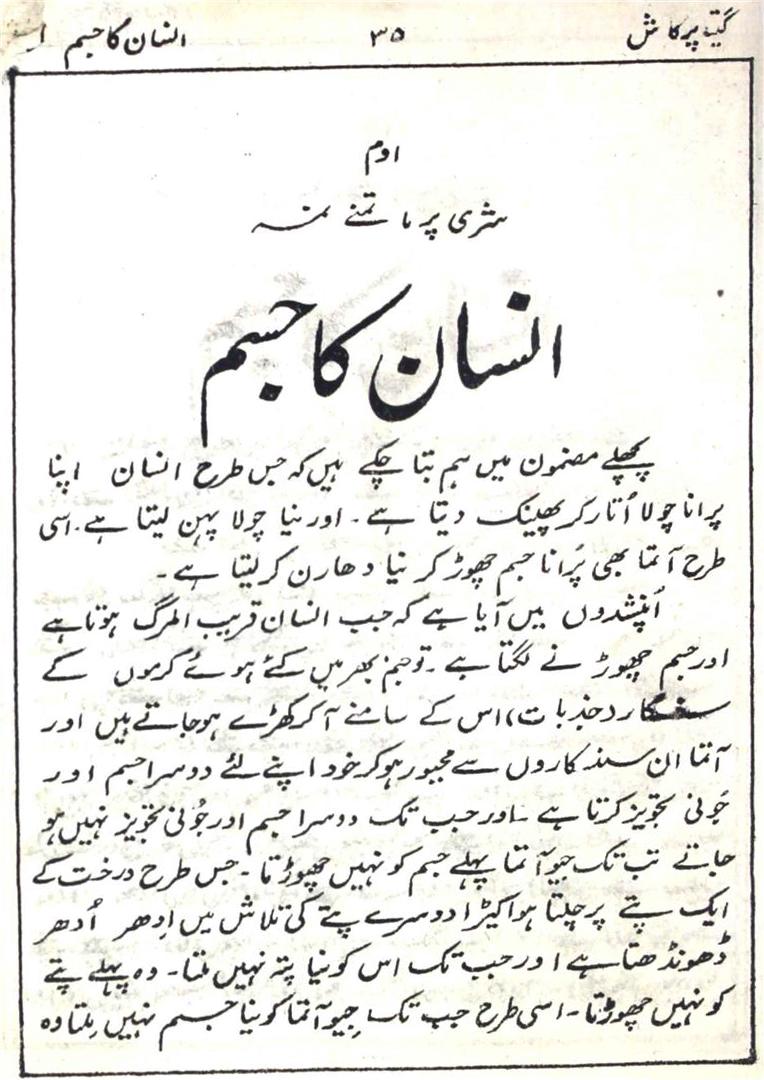 گیتا پرکاش ۳۵ انسان کا جسم
اوم
شری پرماتمنے نمہ
انسان کا جسم
پچھلے مضمون میں ہم بتا چکے ہیں کہ جس طرح انسان اپنا
پرانا چولا اُتار کر پھینک دیتا ہے ۔ اور نیا چولا پہن لیتا ہے ۔ اسی
طرح آتما بھی پُرانا جسم چھوڑ کر نیا دھارن کر لیتا ہے ۔
اُپنشدوں میں آیا ہے کہ جب انسان قریب المرگ ہوتا ہے
اور جسم چھوڑ نے لگتا ہے ۔ تو جنم بھر میں کئے ہوئے کرموں کے
سنسکار (جذبات) اس کے سامنے آ کر کھڑے ہو جاتے ہیں اور
آتما ان سنسکاروں سے مجبور ہو کر خود اپنے لئے دوسرا جسم اور
جُونی تجویز کرتا ہے ۔ اور جب تک دوسرا جسم اور جُونی تجویز نہیں ہو
جاتے تب تک جیو آتما پہلے جسم کو نہیں چھوڑتا ۔ جس طرح درخت کے
ایک پتے پر چلتا ہوا کیڑا دوسرے پتے کی تلاش میں اِدھر اُدھر
ڈھونڈھتا ہے اور جب تک اس کو نیا پتہ نہیں ملتا ۔ وہ پہلے پتے
کو نہیں چھوڑتا ۔ اسی طرح جب تک جیو آتما کو نیا جسم نہیں مِلتا وہ